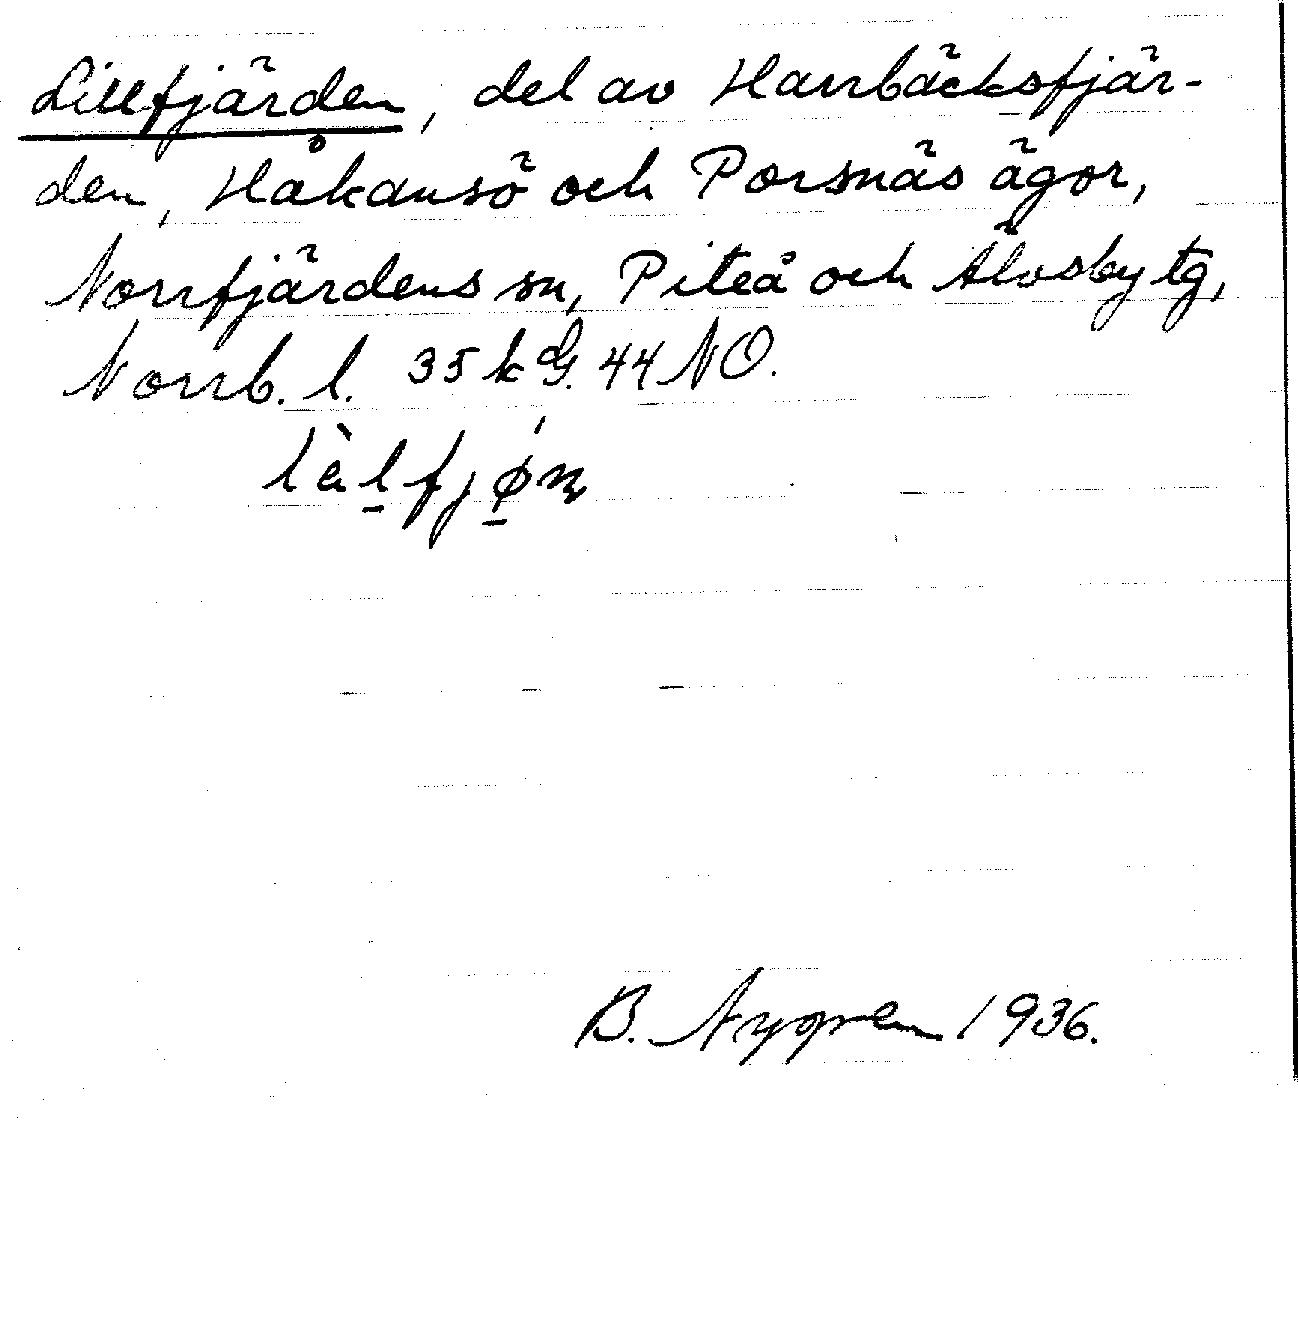 Lillfjärden, del av Harrbäcksfjär-
den, Håkansö och Porsnäs ägor,
Norrfjärdens sn, Piteå och Älvsby tg,
Norrb. l. 35 k G. 44 NO.
B. Nygren 1936.